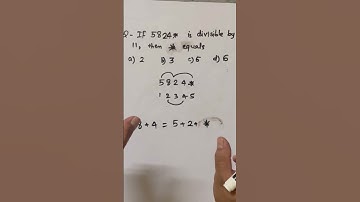 Q- If 5824* is divisible by
11, then * equals
a) 2 b) 3 c) 5 d) 6
5 8 2 4 *
1 2 3 4 5
8+4 = 5+2+ *